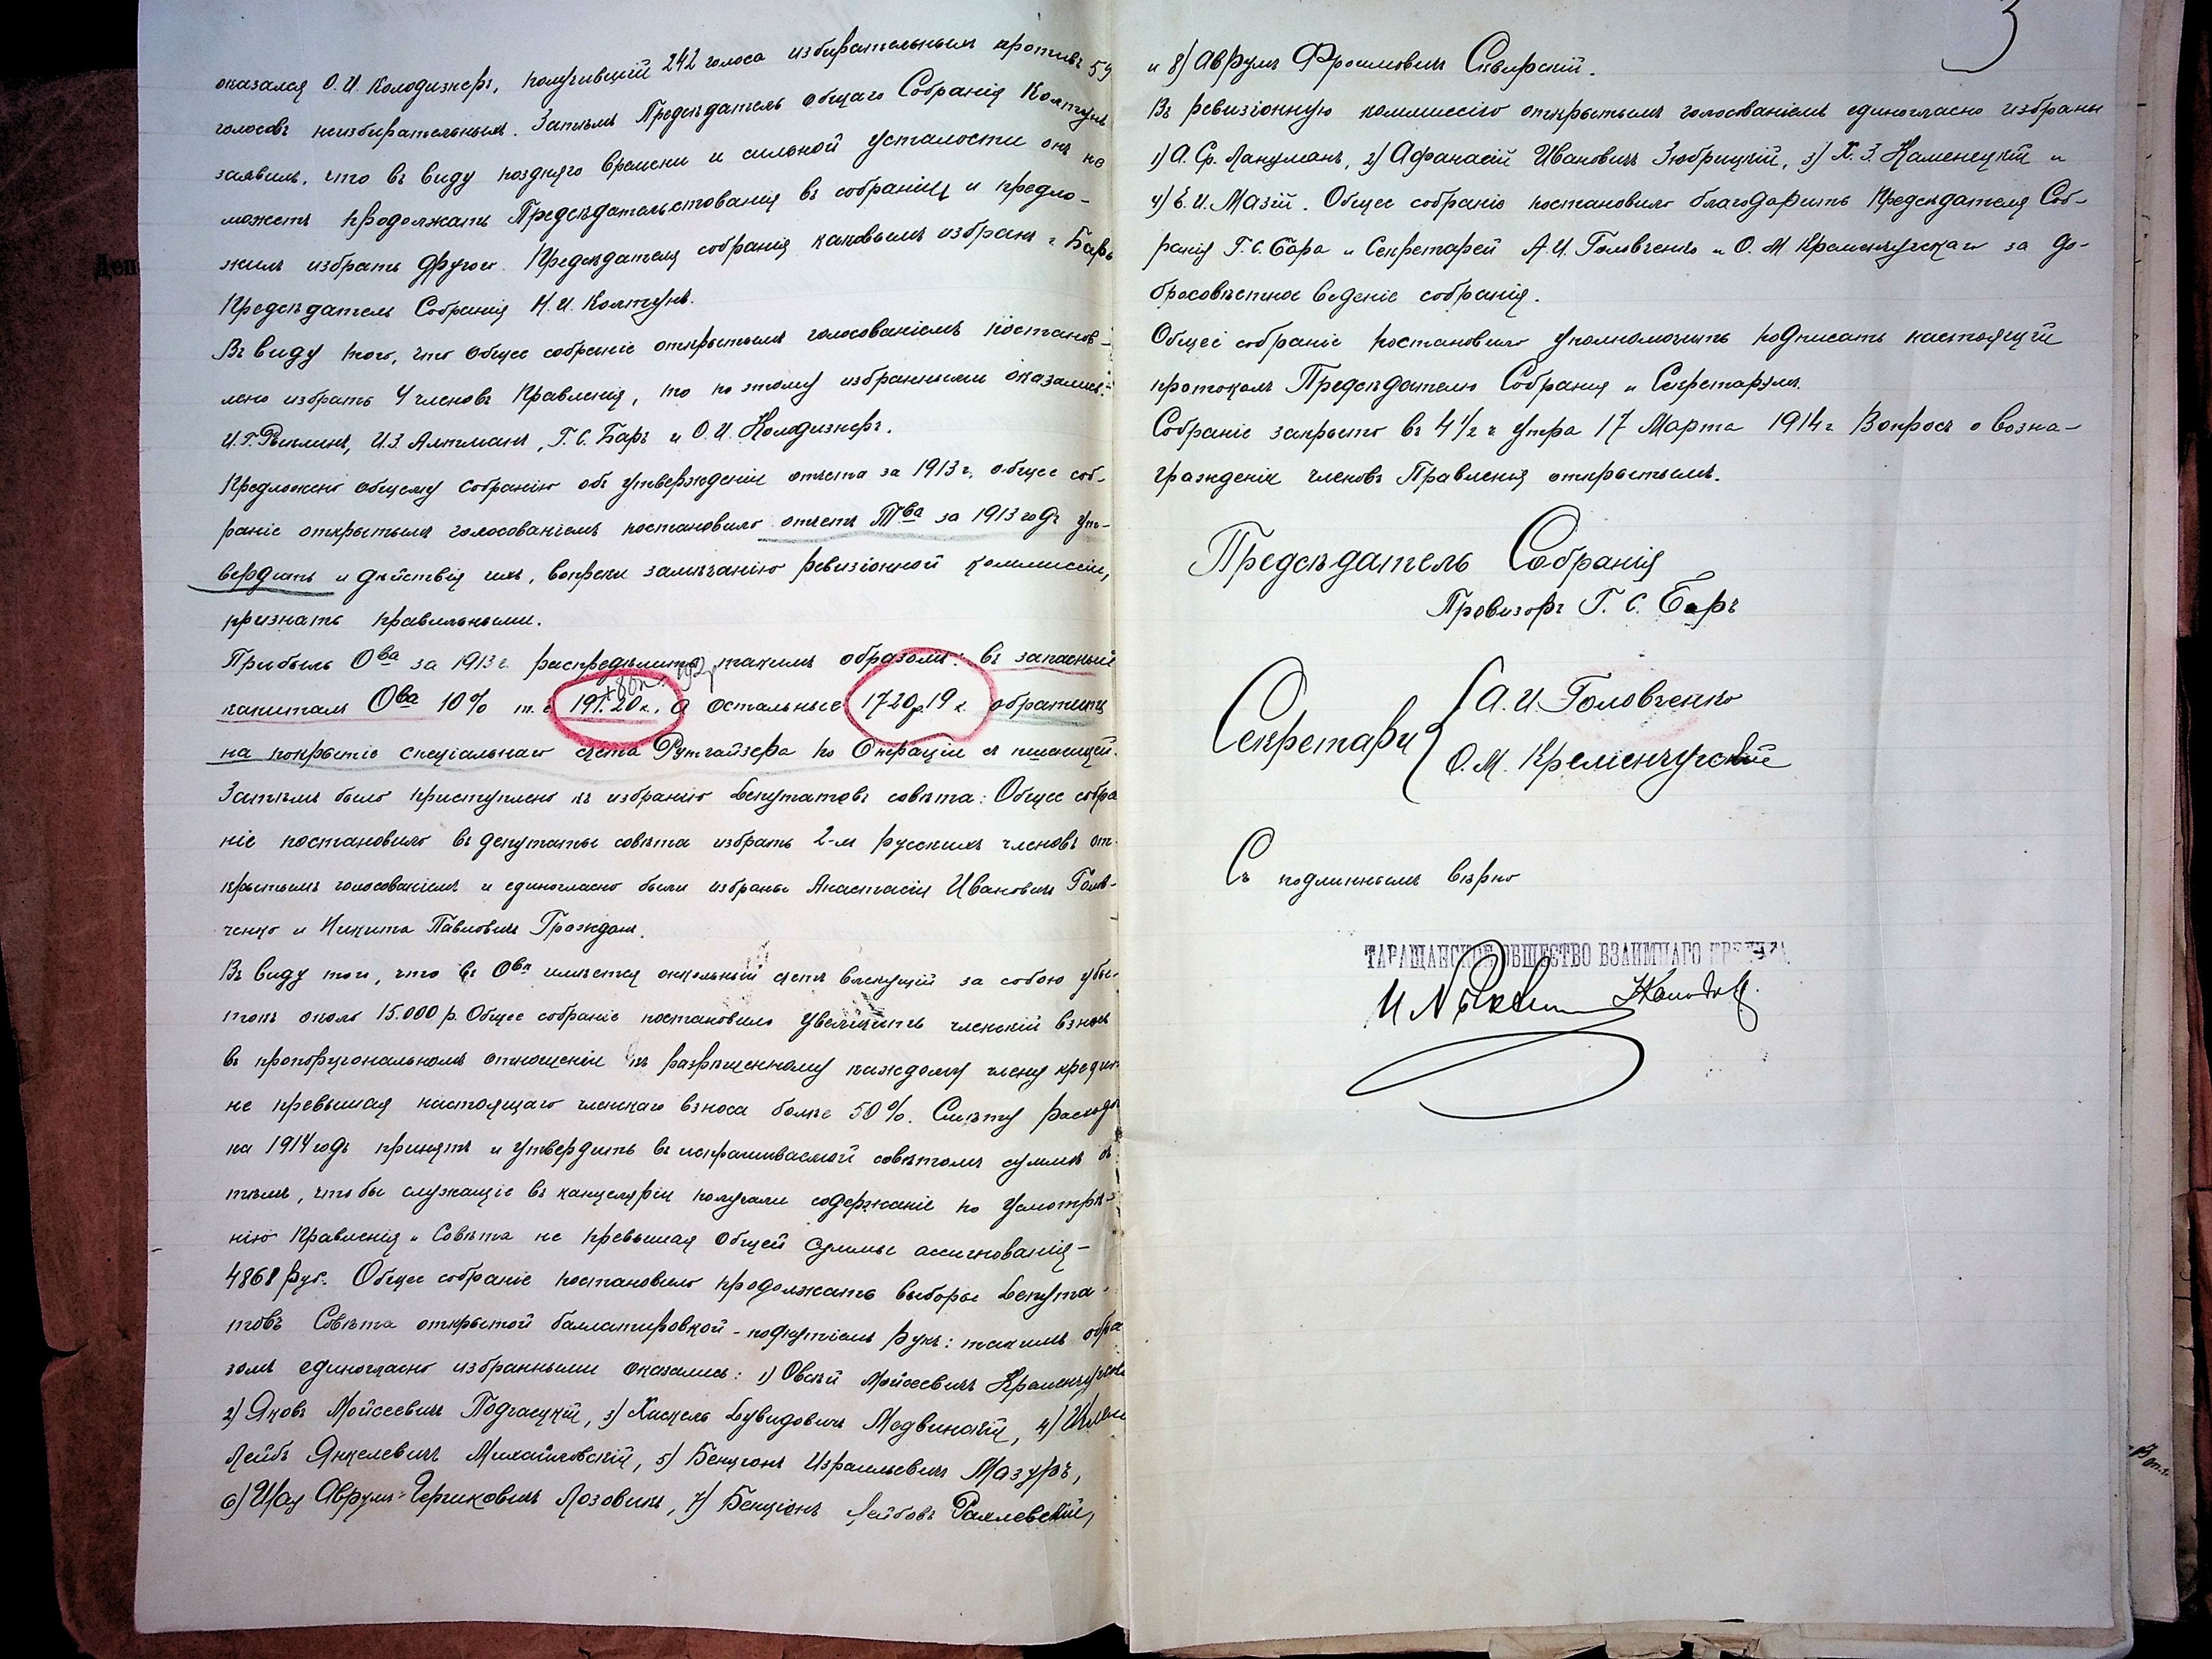 оказался О. И. Колодизнеръ, получившій 242 голоса избирательныхъ противъ 59
голосовъ неизбирательныхъ. Затѣмъ Предсѣдатель общаго Собранія Колтунъ
заявилъ, что въ виду поздняго времени и сильной усталости онъ не
можетъ продолжать Предсѣдательствованія въ собраніи и предло-
жилъ избрать другого Предсѣдателя собранія каковымъ избранъ г. Баръ
Предсѣдатель Собранія Н. И. Колтунъ.
Въ виду того, что общее собраніе открытымъ голосованіемъ постанов-
лено избрать 4 членовъ Правленія, то по этому избранными оказались:
И. Г. Рыклинъ, И. З. Алтманъ, Г. С. Баръ и О. И. Колодизнеръ.
Предложено общему собранію объ утвержденіи отчета за 1913 г. общее соб-
раніе открытымъ голосованіемъ постановило отчетъ Тва за 1913 годъ ут-
вердить и дѣйствія ихъ, вопреки замѣчанію ревизіонной коммиссіи,
признать правильными.
Прибыль Ова за 1913 г. распредѣлить такимъ образомъ: въ запасный
капиталъ Ова 10% т. е 191.20 к., а остальные 1720 р. 19 к. обратить
на покрытіе спеціальнаго счета Рутгайзера по Операціи съ пшеницей.
Затѣмъ было приступлено къ избранію Депутатовъ совѣта: Общее собра
ніе постановило въ депутаты совѣта избрать 2-хъ русскихъ членовъ от-
крытымъ голосованіемъ и единогласно были избраны Анастасій Ивановичъ Голов-
ченко и Никита Павловичъ Грождан.
Въ виду того, что въ Ова имѣется онкольный счетъ влекущій за собою убы-
токъ около 15.000 р. Общее собраніе постановило увеличить членскій взносъ
въ пропорціональномъ отношеніи къ разрѣшенному каждому члену кредит
не превышая настоящаго членскаго взноса болѣе 50%. Смѣту расхода
на 1914 годъ принять и утвердить въ испрашиваемой совѣтомъ суммѣ съ
тѣмъ, что бы служащіе въ канцеляріи получали содержаніе по усмотрѣ-
нію Правленія и Совѣта не превышая Общей суммы ассигнованія -
4868 руб. Общее собраніе постановило продолжать выборы Депута-
товъ Совѣта открытой баллатировкой - поднятіемъ рукъ: такимъ обра
зомъ единогласно избранными оказались: 1) Овсѣй Мойсеевичъ Кременчугскій
2) Яковъ Мойсеевичъ Подгаецкій, 3) Хаскель Дувидовичъ Медвинскій, 4)
Лейбъ Янкелевичъ Михайловскій, 5) Бенціонъ Израильевичъ Мазуръ,
6) Шая Аврумъ-Гершковичъ Лозовикъ, 7) Бенціонъ Лейбовъ
3
и 8) Аврумъ Фроимовичъ Сквирскій.
Въ ревизіонную коммиссію открытымъ голосованіемъ единогласно избраны
1) А. Ср. Лануманъ, 2) Афанасій Ивановичъ Зюбрицкій, 3) Х. З. Каменецкій и
4) Е. И. Мазій. Общее собраніе постановило благодарить Предсѣдателя Соб-
ранія Г. С. Бара и Секретарей А. И. Головченко и О. М. Кременчугскаго за до-
бросовѣстное веденіе собранія.
Общее собраніе постановило уполномочить подписать настоящій
протоколъ Предсѣдателю Собранія и Секретарямъ.
Собраніе закрыто въ 4 1/2 ч утра 17 Марта 1914 г Вопросъ о возна-
гражденіи членовъ Правленія открытымъ.
Предсѣдатель Собранія
Провизоръ Г. С. Баръ
Секретари { А. И. Головченко
О. М. Кременчугскій
Съ подлиннымъ вѣрно
ТАРАЩАНСКОЕ ОБЩЕСТВО ВЗАИМНАГО КРЕДИТА